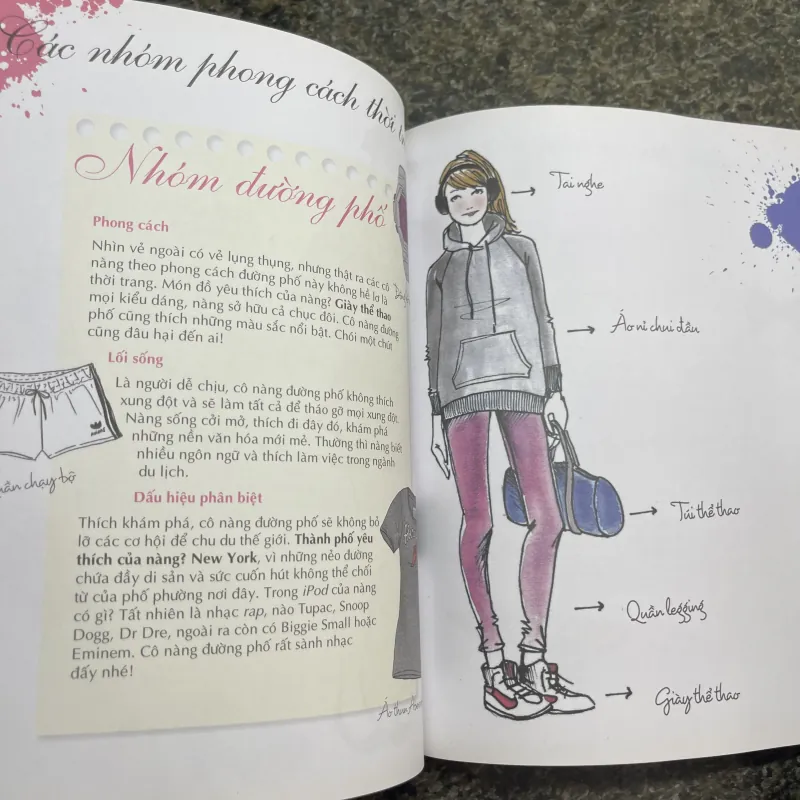 Các nhóm phong cách thời
Nhóm đường phố
Phong cách
Nhìn vẻ ngoài có vẻ lụng thụng, nhưng thật ra các cô
nàng theo phong cách đường phố này không hề lơ là
thời trang. Món đồ yêu thích của nàng? Giày thể thao
mọi kiểu dáng, nàng sở hữu cả chục đôi. Cô nàng đường
phố cũng thích những màu sắc nổi bật. Chói một chút
cũng đâu hại đến ai!
Lối sống
Là người dễ chịu, cô nàng đường phố không thích
xung đột và sẽ làm tất cả để tháo gỡ mọi xung đột.
Nàng sống cởi mở, thích đi đây đó, khám phá
những nền văn hóa mới mẻ. Thường thì nàng biết
nhiều ngôn ngữ và thích làm việc trong ngành
du lịch.
chạy bộ
Dấu hiệu phân biệt
Thích khám phá, cô nàng đường phố sẽ không bỏ
lỡ các cơ hội để chu du thế giới. Thành phố yêu
thích của nàng? New York, vì những nẻo đường
chứa đầy di sản và sức cuốn hút không thể chối
từ của phố phường nơi đây. Trong iPod của nàng
có gì? Tất nhiên là nhạc rap, nào Tupac, Snoop
Dogg, Dr Dre, ngoài ra còn có Biggie Small hoặc
Eminem. Cô nàng đường phố rất sành nhạc
đấy nhé!
Áo thun
Tai nghe
Áo nỉ chui đầu
Túi thể thao
Quần legging
Giày thể thao